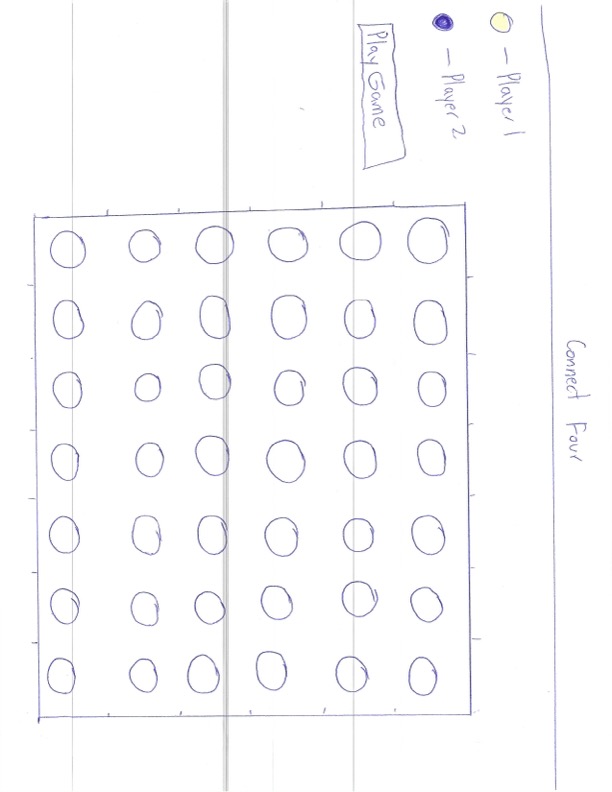 Connect Four
— Player 1
— Player 2
Play Game